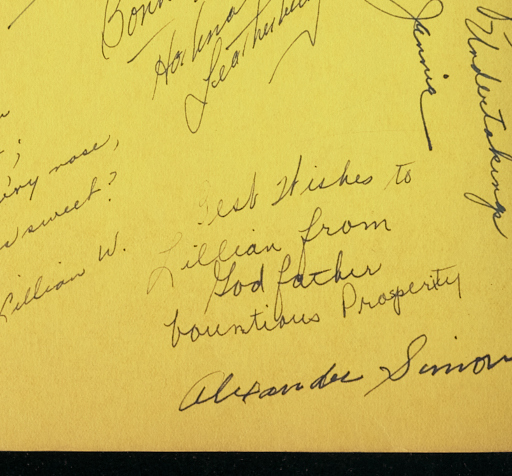 Bonn
Hortense
Leatherberry
Jennie
Undertakings
iny nose,
sweet?
Lillian W.
Best Wishes to
Lillian from
God father
bountious Prosperity
Alexander Simon